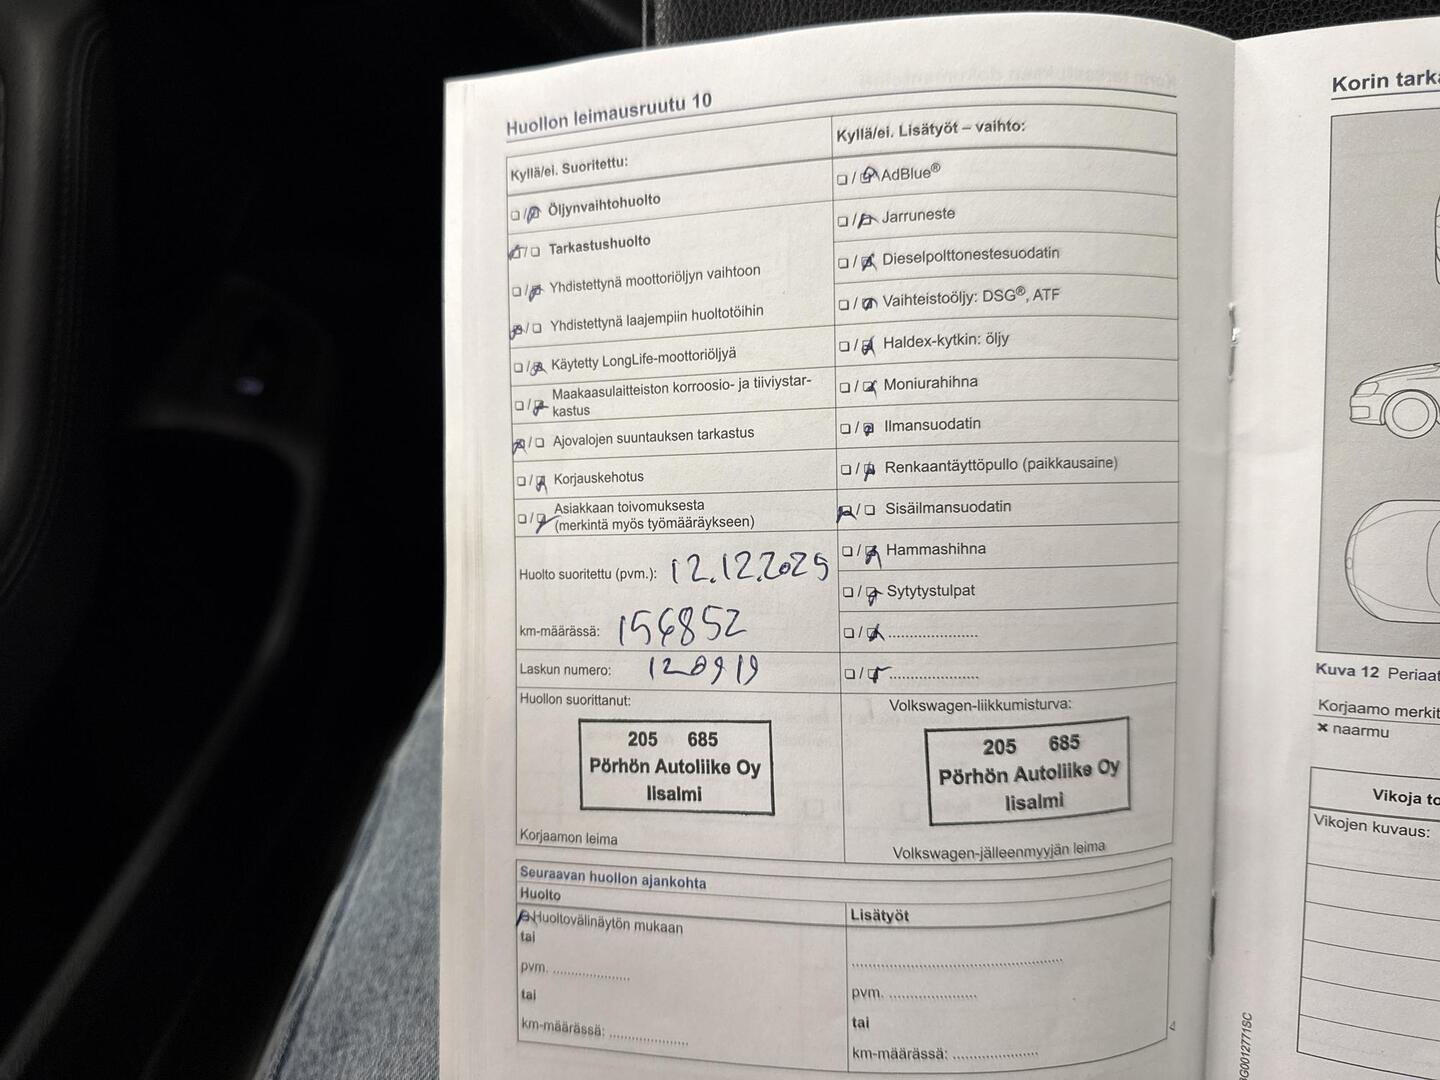 Huollon leimausruutu 10
Kyllä/ei. Suoritettu:
❏ / ❏ Öljynvaihtohuolto
❏ / ❏ Tarkastushuolto
❏ / ❏ Yhdistettynä moottoriöljyn vaihtoon
❏ / ❏ Yhdistettynä laajempiin huoltotöihin
❏ / ❏ Käytetty LongLife-moottoriöljyä
❏ / ❏ Maakaasulaitteiston korroosio- ja tiiviystar-
kastus
❏ / ❏ Ajovalojen suuntauksen tarkastus
❏ / ❏ Korjauskehotus
❏ / ❏ Asiakkaan toivomuksesta
(merkintä myös työmääräykseen)
Huolto suoritettu (pvm.): 12.12.2025
km-määrässä: 156852
Laskun numero:
Huollon suorittanut:
205 685
Pörhön Autoliike Oy
Iisalmi
Korjaamon leima
Kyllä/ei. Lisätyöt – vaihto:
❏ / ❏ AdBlue®
❏ / ❏ Jarruneste
❏ / ❏ Dieselpolttonestesuodatin
❏ / ❏ Vaihteistoöljy: DSG®, ATF
❏ / ❏ Haldex-kytkin: öljy
❏ / ❏ Moniurahihna
❏ / ❏ Ilmansuodatin
❏ / ❏ Renkaantäyttöpullo (paikkausaine)
❏ / ❏ Sisäilmansuodatin
❏ / ❏ Hammashihna
❏ / ❏ Sytytystulpat
❏ / ❏ ......................
❏ / ❏ ......................
Volkswagen-liikkumisturva:
205 685
Pörhön Autoliike Oy
Iisalmi
Volkswagen-jälleenmyyjän leima
Seuraavan huollon ajankohta
Huolto
❏ Huoltovälinäytön mukaan
tai
pvm. ...................
tai
km-määrässä: ...................
Lisätyöt
..................................................
pvm. .....................
tai
km-määrässä: .....................
Korin tarka
Kuva 12 Periaat
Korjaamo merkit
× naarmu
Vikoja to
Vikojen kuvaus: